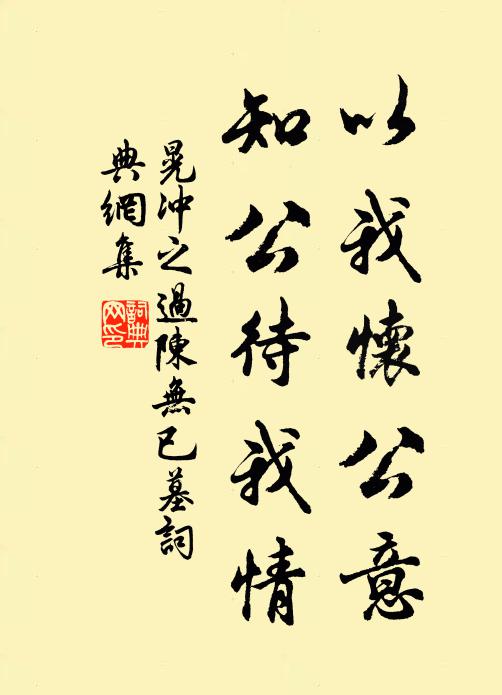 以我懷公意
知公待我情
晁沖之過陳無己墓詞
典網集
詞典
网印